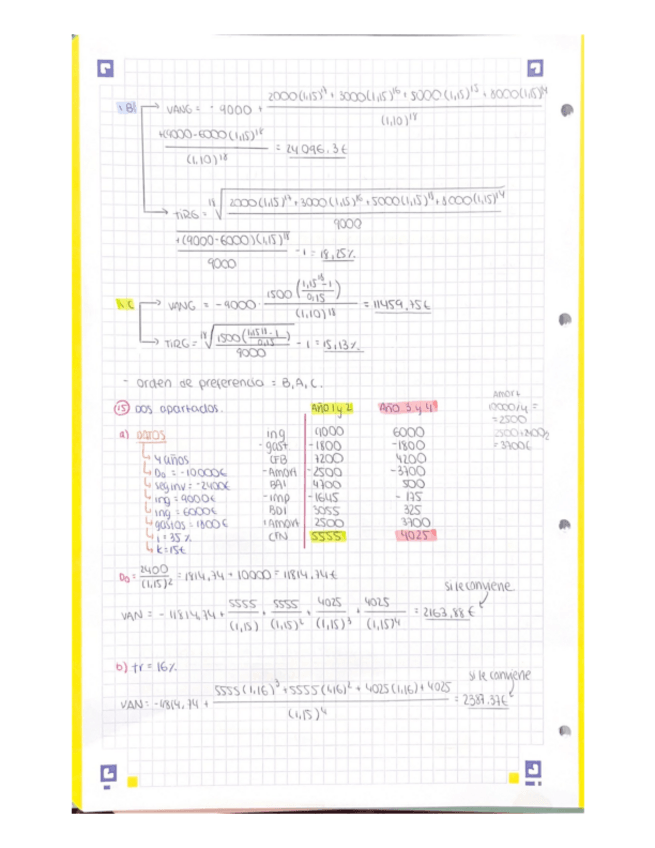 1.B) VANG = -9000 + (2000(1,15)¹⁷ + 3000(1,15)¹⁶ + 5000(1,15)¹⁵ + 8000(1,15)¹⁴) / (1,10)¹⁸
+(9000-6000(1,15)¹⁸ / (1,10)¹⁸ = 24096,3€
TIRG = ¹⁸√(2000(1,15)¹⁷ + 3000(1,15)¹⁶ + 5000(1,15)¹⁵ + 8000(1,15)¹⁴ / 9000
+(9000-6000)(1,15)¹⁸ / 9000 - 1 = 18,25%
1.C VANG = -9000 · 1500 (1,15¹⁸-1 / 0,15) / (1,10)¹⁸ = 11459,75€
TIRG = ¹⁸√(1500(1,15¹⁸-1 / 0,15) / 9000) - 1 = 15,13%
- orden de preferencia = B, A, C.
15 Dos apartados.
a) DATOS
4 años
D₀ = -10000€
seg inv = -2400€
ing = 9000€
ing = 6000€
gastos = 1800€
i = 35%
k = 15€
Año 1 y 2 Año 3 y 4
ing 9000 6000
- gast -1800 -1800
CFB 7200 4200
- Amort -2500 -3700
BAI 4700 500
- imp -1645 -175
BDI 3055 325
+ Amort 2500 3700
CFN 5555 4025
Amort
10000/4 =
= 2500
= 3700€
D₀ = 2400 / (1,15)² = 1814,74 + 10000 = 11814,74€
si le conviene
VAN = -11814,74 + 5555 / (1,15) + 5555 / (1,15)² + 4025 / (1,15)³ + 4025 / (1,15)⁴ = 2163,88€
b) tr = 16%
si le conviene
VAN = -11814,74 + 5555(1,16)³ + 5555(1,16)² + 4025(1,16) + 4025 / (1,15)⁴ = 2387,37€